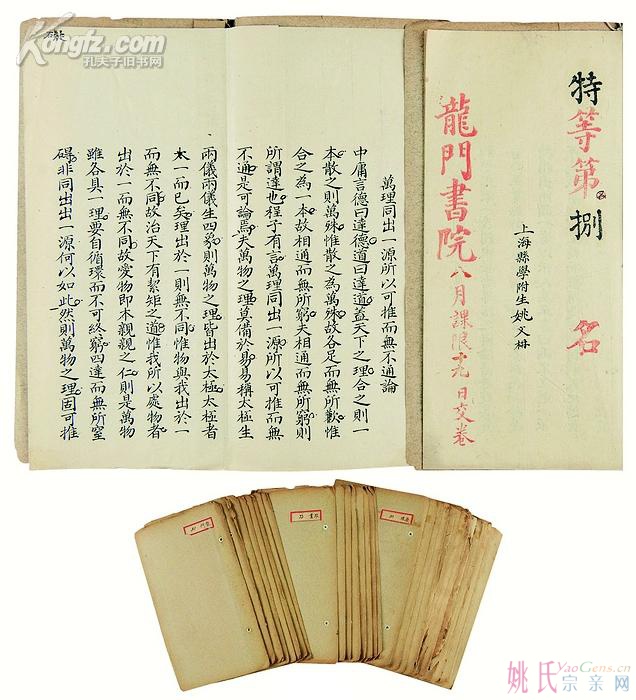 特等第捌名
上海縣學附生姚文枬
龍門書院八月課限十九日交卷
萬理同出一源所以可推而無不通論
中庸言德曰達德道曰達道蓋天下之理合之則一
本散之則萬殊惟散之為萬殊故各足而無所歉惟
合之為一本故相通而無所窮夫相通而無所窮則
所謂達也程子有言萬理同出一源所以可推而無
不通是可論焉夫萬物之理莫備於易易稱太極生
兩儀兩儀生四象則萬物之理皆出於太極太極者
太一而已矣理出於一則無不同惟物與我出於一
而無不同故治天下有絜矩之道惟我所以處物者
出於一而無不同故愛物即本親親之仁則是萬物
雖各具一理要自循環而不可終窮四達而無所窒
碍非同出出一源何以如此然則萬物之理固可推
Kongfz.com
孔夫子旧书网
姚氏YaoGens.cn
宗亲网